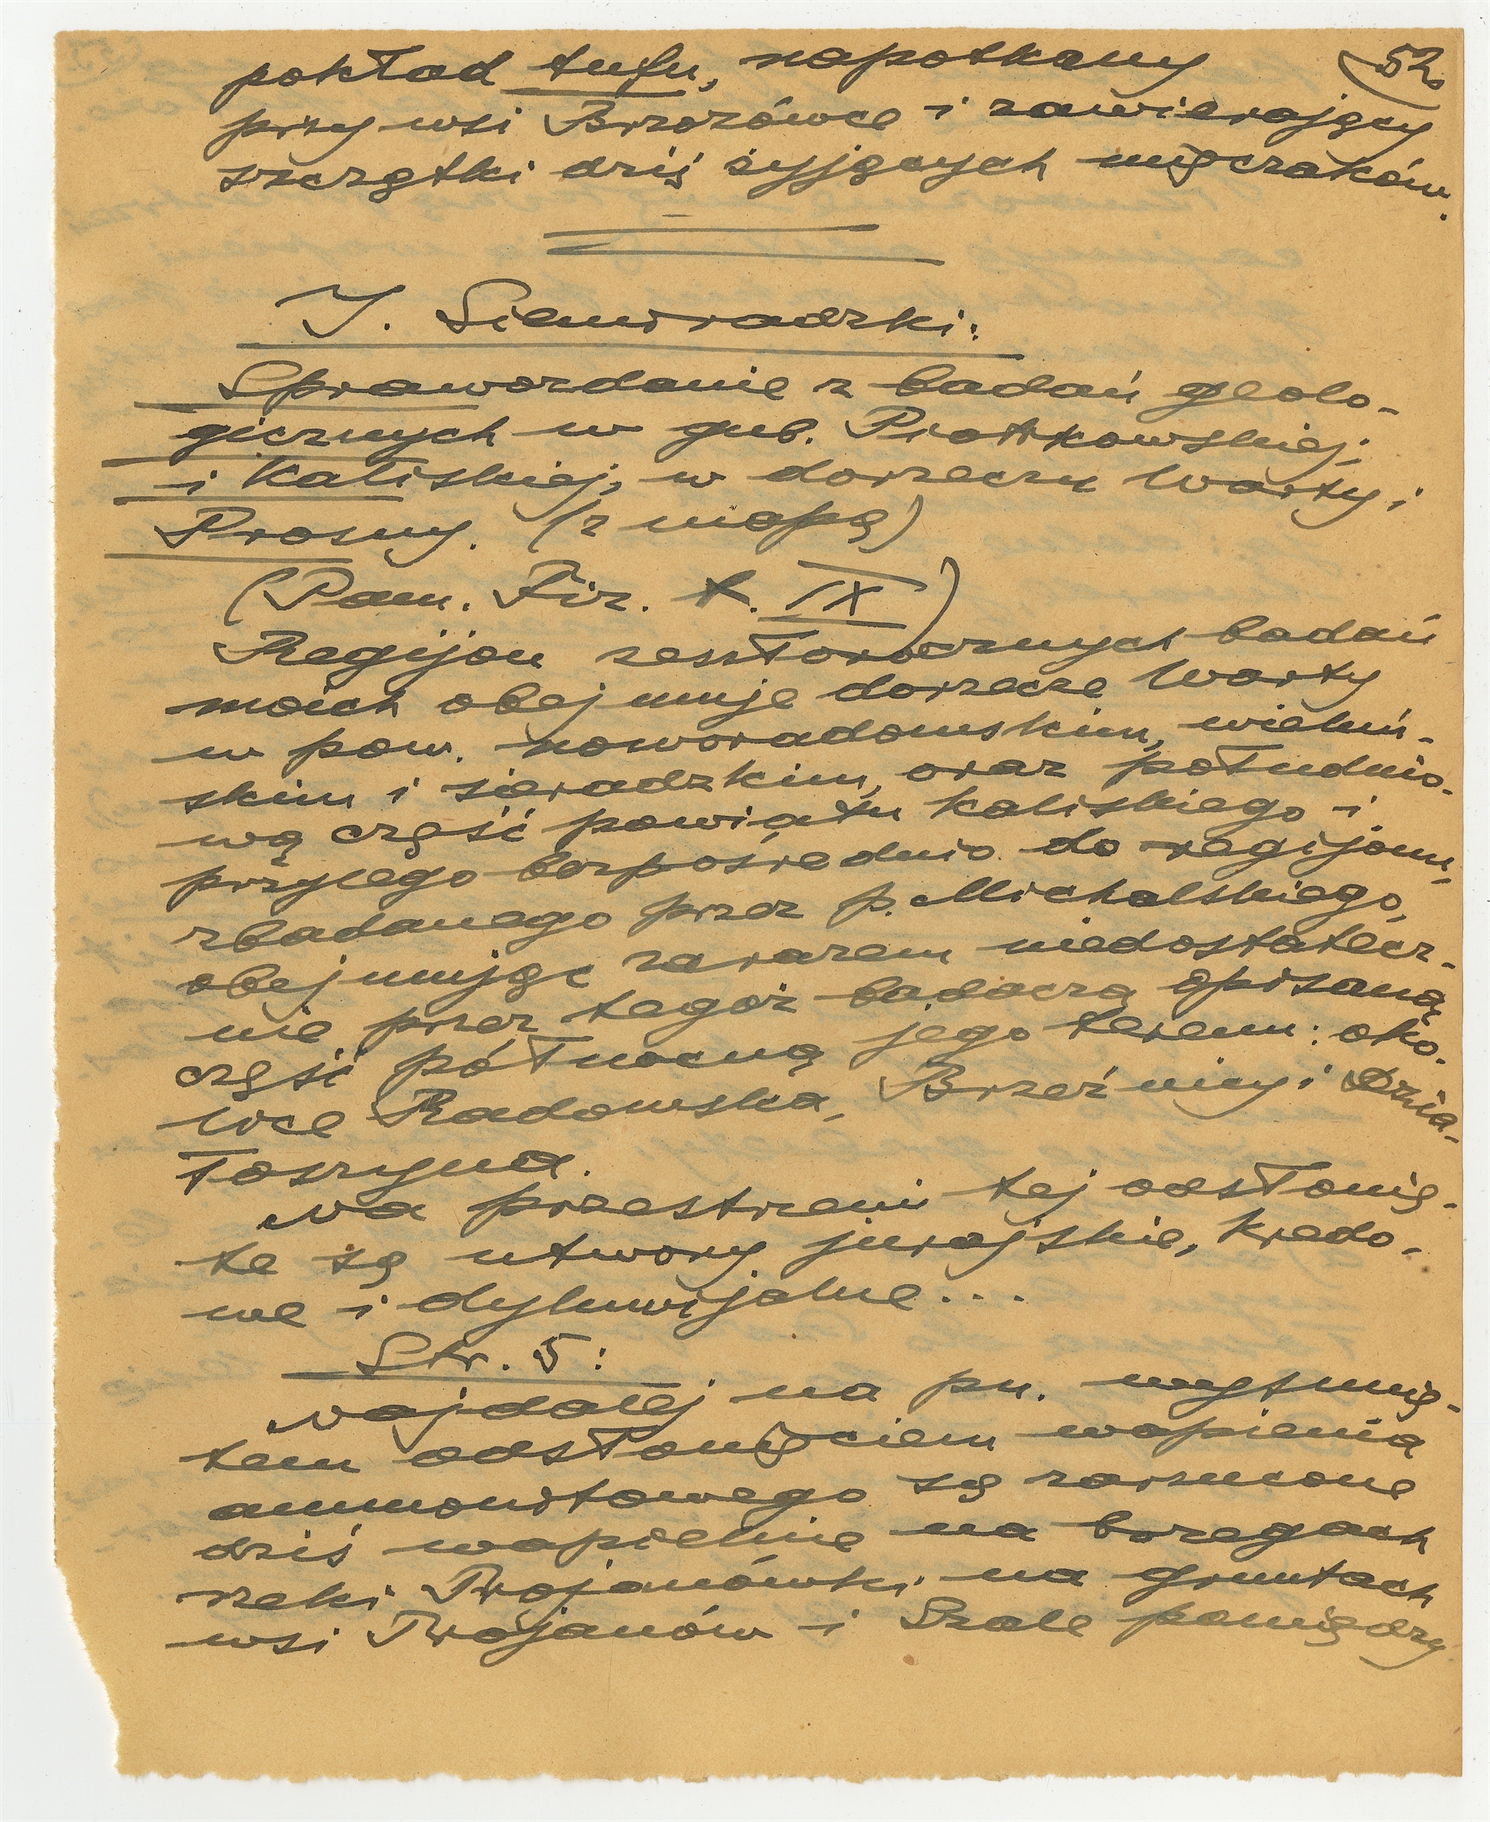 52
pokład tufu, napotkany
przy wsi Brzozówce i zawierający
szczątki dziś żyjących mięczaków.
J. Siemiradzki:
Sprawozdanie z badań geolo-
gicznych w gub. Piotrkowskiej
i Kaliskiej, w dorzeczu Warty i
Prosny. (z mapą)
(Pam. Fiz. t. IX)
Regijon zesztorocznych badań
moich obejmuje dorzecze Warty
w pow. noworadomskim, wieluń-
skim i sieradzkim, oraz południo-
wą część powiatu kaliskiego i
przylega bezpośrednio do regijonu,
zbadanego przez p. Michalskiego,
obejmując zarazem niedostatecz-
nie przez tegoż badacza opisaną
część północną jego terenu: oko-
lice Radomska, Brzeźnicy i Dzia-
łoszyna.
Na przestrzeni tej odsłonię-
te są utwory jurajskie, kredo-
we i dyluwijalne...
Str. 5:
Najdalej na pn. wysunię-
tem odsłonięciem wapienia
ammonitowego są zarzucone
dziś wapielnie na brzegach
rzeki Trojanówki na gruntach
wsi Trojanów i Szale pomiędzy